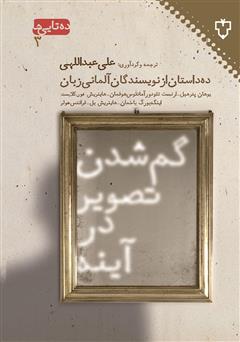 ده‌تایی‌ها
۳
ترجمه و گردآوری: علی عبداللهی
ده داستان از نویسندگان آلمانی زبان
یوهان پتر هبل، ارنست تئودور آمادئوس هوفمان، هاینریش فون کلایست
اینگه‌بورگ باخمان، هاینریش بل، فرانتس هولر
گم شدن
تصویر
در
آینه